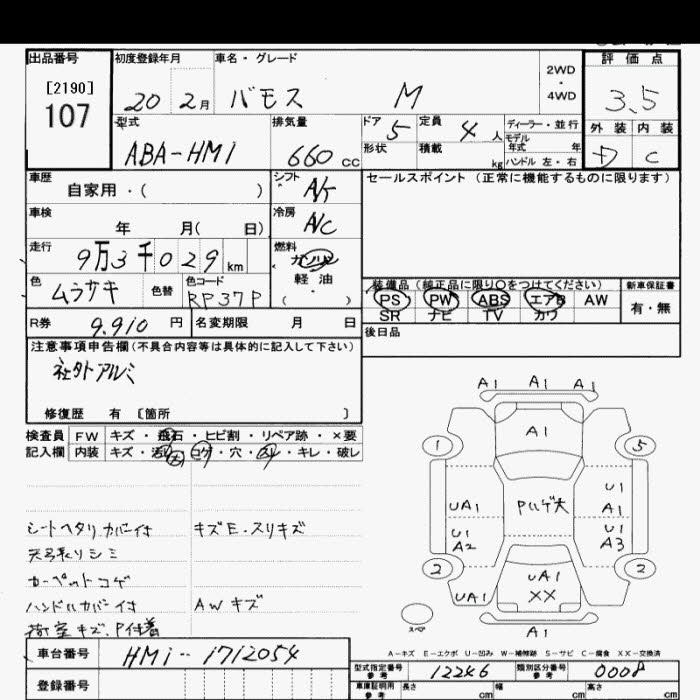 出品番号
[2190]
107
初度登録年月
20 2月
車名・グレード
バモス M
2WD
・
4WD
評価点
3.5
型式
ABA-HM1
排気量
660 cc
ドア
5
定員
4 人
ディーラー・並行
モデル
年式 年
形状
積載
kg
ハンドル 左・右
外装 内装
C
車歴
自家用・( )
シフト
A/T
セールスポイント (正常に機能するものに限ります)
車検
年 月( 日)
冷房
A/C
走行
9万3千029 km
燃料
ガソリン
軽油
( ・ )
色
ムラサキ
色替
色コード
RP37P
装備品 (純正品に限り〇をつけてください)
新車保証書
PS PW ABS エアB AW
有・無
SR ナビ TV カワ
R券
9.910 円
名変期限 月 日
後日品
注意事項申告欄(不具合内容等は具体的に記入して下さい)
社外アルミ
修復歴 有 〔箇所 〕
検査員 FW キズ・飛石・ヒビ割・リペア跡・×要
記入欄 内装 キズ・汚れ・コゲ・穴・スレ・キレ・破レ
シートヘタリ カバー付 キズE.スリキズ
天張リシミ
カーペットコゲ
ハンドルカバー付 AWキズ
荷室キズ、P付着
A1 A1 A1
A1
1 5
Pハゲ大
UA1
U1
A1
U1
A2
U1
A3
2 2
UA1
UA1
XX
A1
スペア
A-キズ E-エクボ U-凹み W-補修跡 S-サビ C-腐食 XX-交換済
車台番号
HM1-1712054
型式指定番号
参考
12246
類別区分番号
参考
0008
登録番号
車庫証明用
参考
長さ cm
幅 cm
高さ cm